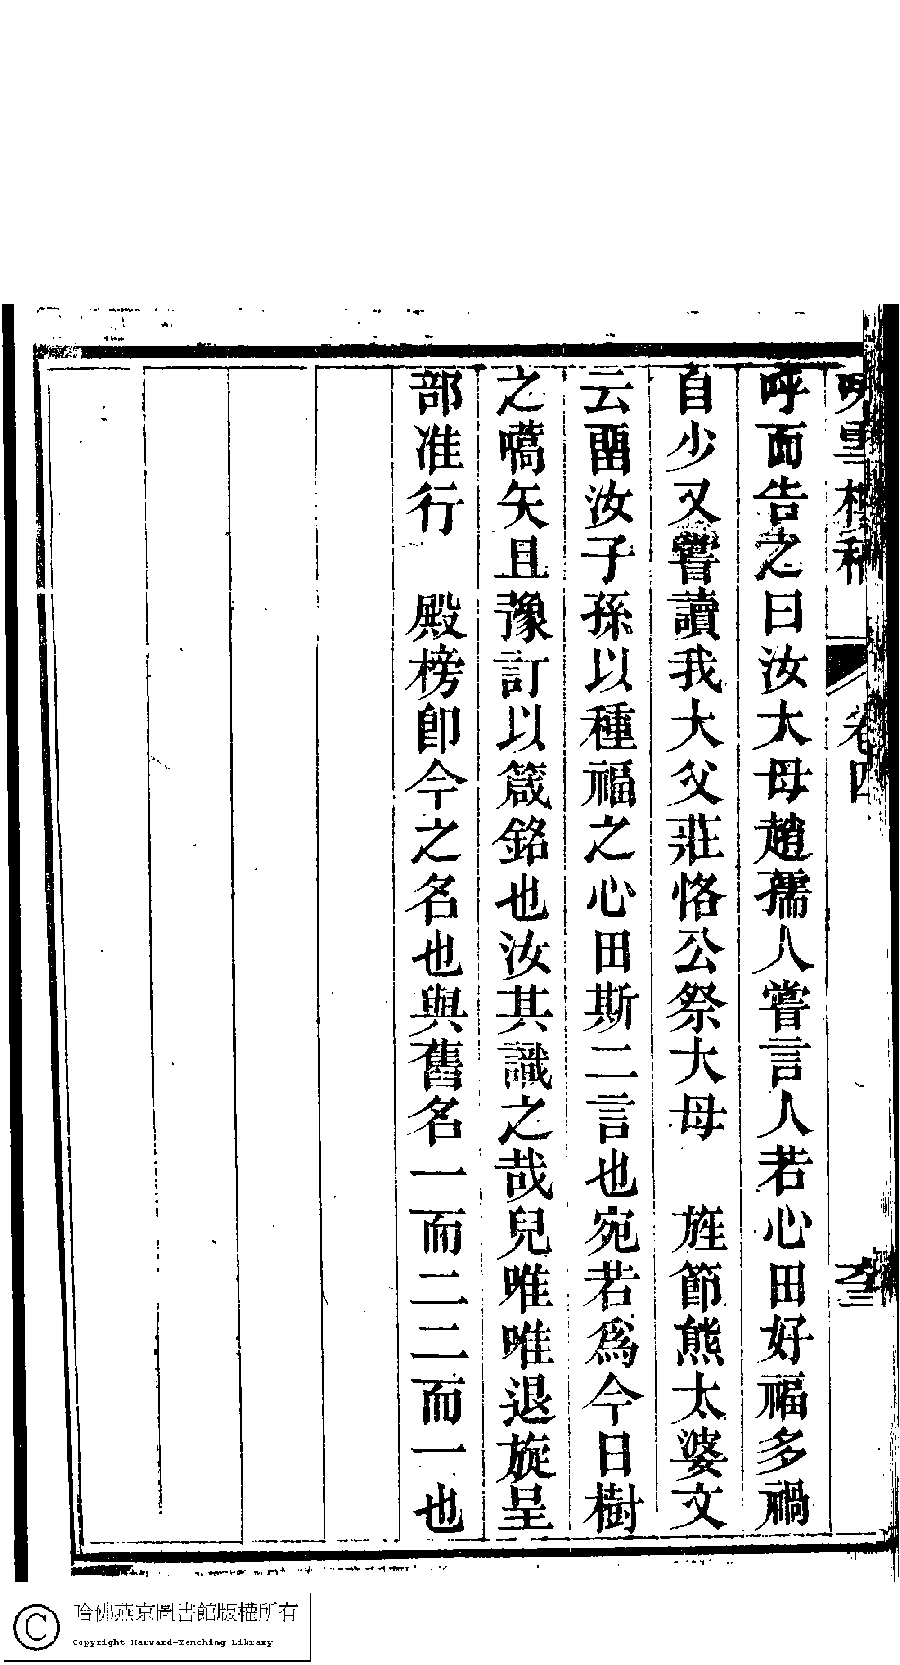 卷四
呼面告之曰汝大母趙孺人嘗言人若心田好福多禍
自少又嘗讀我大父莊恪公祭大母　旌節熊太婆文
云畱汝子孫以種福之心田斯二言也宛若爲今日樹
之嚆矢且豫訂以箴銘也汝其識之哉兒唯唯退旋呈
部准行　殿榜卽今之名也與舊名一而二二而一也
哈佛燕京圖書館版權所有
Copyright Harvard-Yenching Library